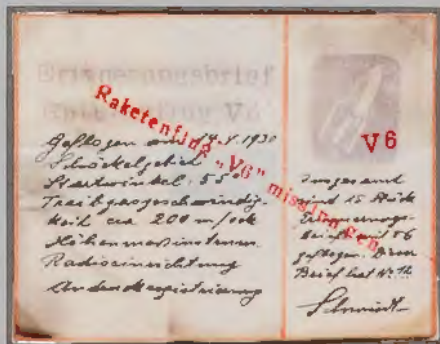 Erinnerungsbrief
Raketenflug V6
Raketenflug „V6" misslungen
V6
Geflogen am
Schöckelgebiet
Startwinkel. 55°
Treibgasgeschwindig-
keit ca 200 m/sek
Höhenmessinstrum.
Radioeinrichtung
Insgesamt
sind 15 Stück
Erinnerungs-
briefe mit V6
geflogen. Dieser
Brief hat No 12
Schmiedl